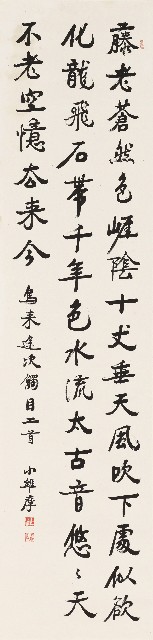 藤老蒼然色崕陰十丈垂天風吹下處似欲
化龍飛石帶千年色水流太古音悠〻天
不老空憶去来今
烏来途次觸目二首
小維摩